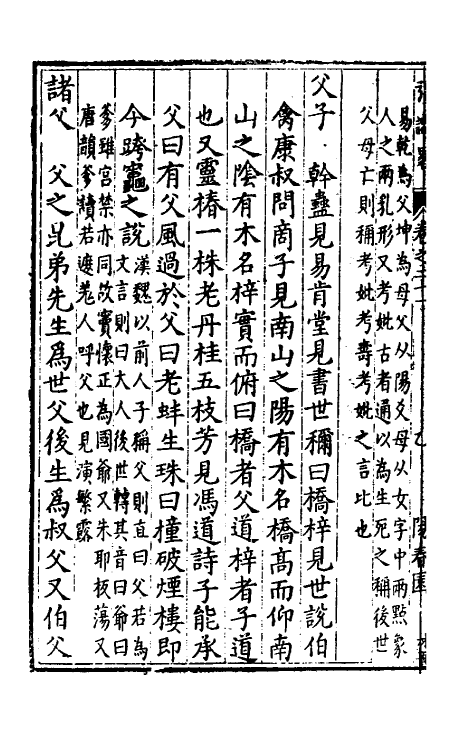 易乾為父坤為母父从陽爻母从女字中兩㸃象
人之兩乳形又考妣古者通以為生死之稱後世
父母亡則稱考妣考壽考妣之言比也
父子·幹蠱見易肯堂見書世稱曰橋梓見世說伯
禽康叔問商子見南山之陽有木名橋高而仰南
山之陰有木名梓實而俯曰橋者父道梓者子道
也又靈椿一株老丹桂五枝芳見馮道詩子能承
父曰有父風過於父曰老蚌生珠曰橦破煙樓即
今跨竈之說
漢魏以前人子稱父則直曰父若為
文言則曰大人後世轉其音曰爺曰
爹雖宮禁亦同故竇懷正為國爺又朱耶板蕩又
唐韻爹牘若遮羗人呼父也見演繁露
諸父 父之昆弟先生為世父後生為叔父又伯父